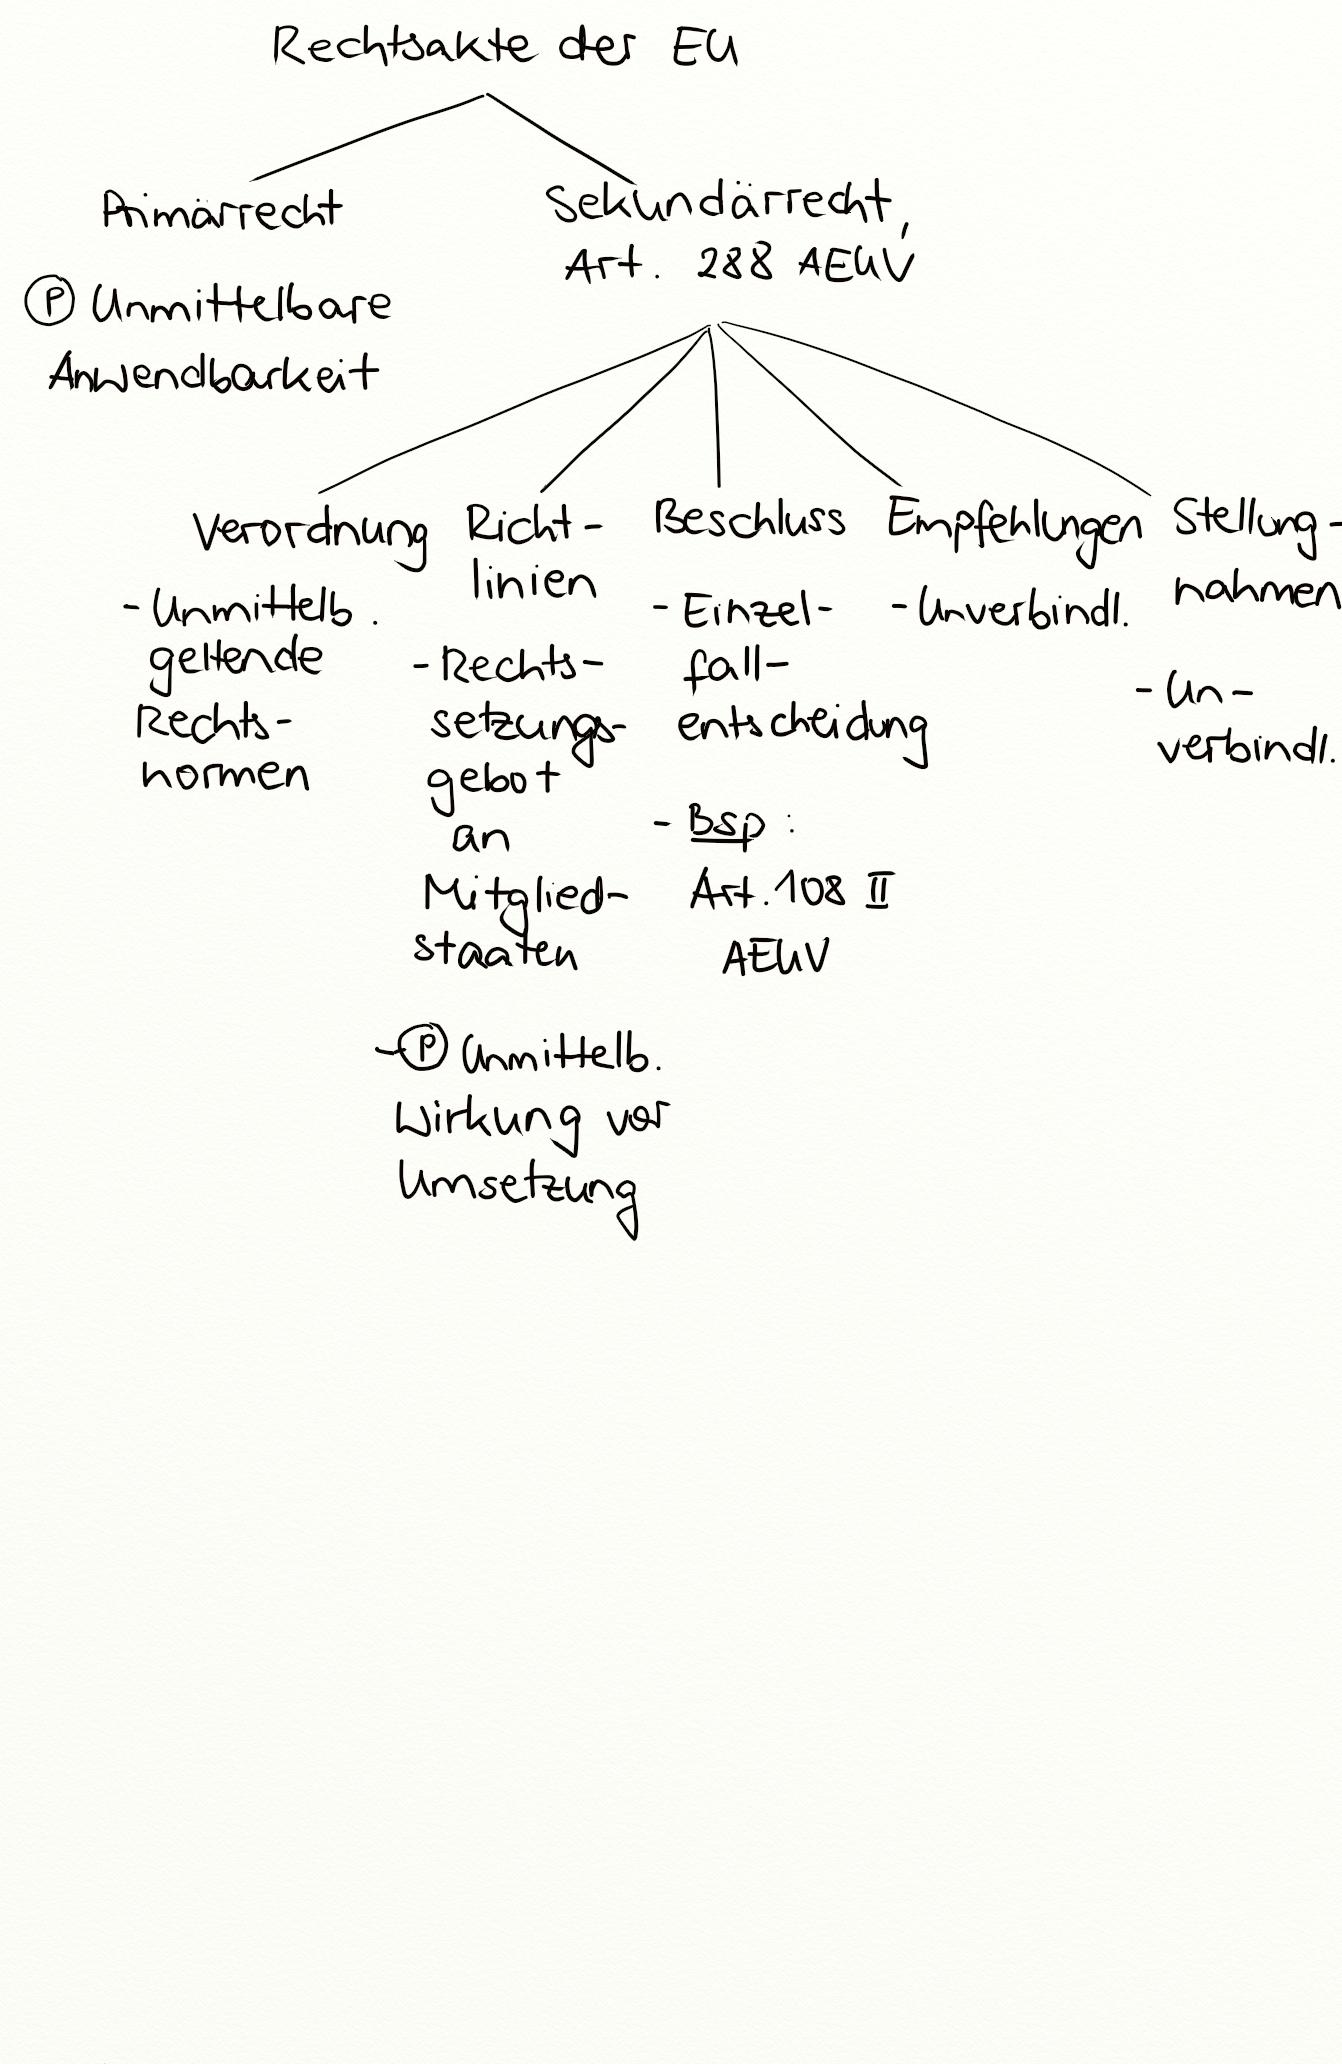 Rechtsakte der EU
Primärrecht
Ⓟ Unmittelbare
Anwendbarkeit
Sekundärrecht,
Art. 288 AEUV
Verordnung
- Unmittelb.
geltende
Rechts-
normen
Richt-
linien
- Rechts-
setzungs-
gebot
an
Mitglied-
staaten
- Ⓟ Unmittelb.
Wirkung vor
Umsetzung
Beschluss
- Einzel-
fall-
entscheidung
- Bsp:
Art. 108 II
AEUV
Empfehlungen
- Unverbindl.
Stellung-
nahmen
- Un-
verbindl.